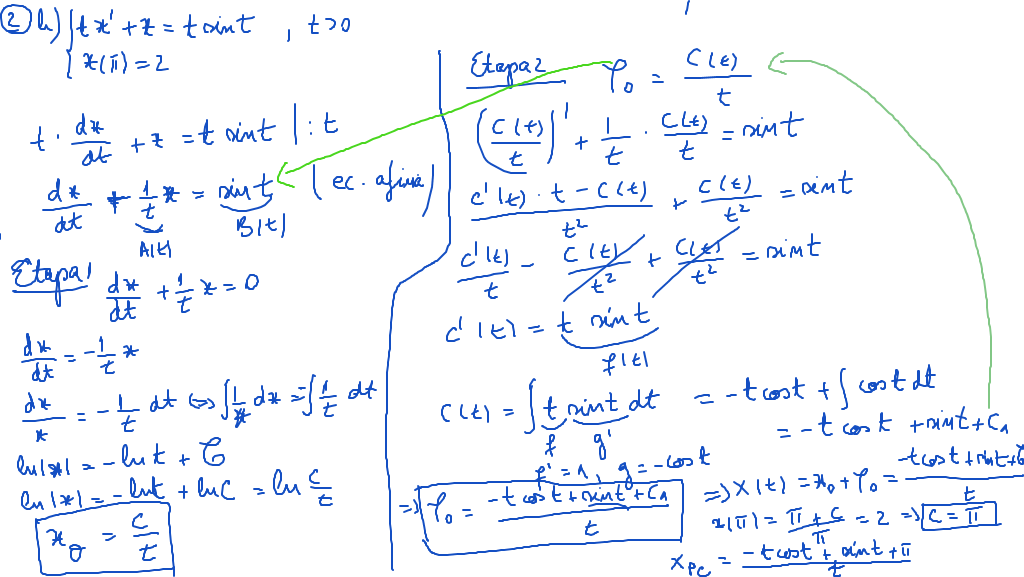 ② h) { t x' + x = t sin t , t > 0
x(π) = 2
t · dx/dt + x = t sin t | : t
dx/dt + 1/t x = sin t (ec. afină)
A(t) B(t)
Etapa 1 dx/dt + 1/t x = 0
dx/dt = - 1/t x
dx/x = - 1/t dt ⇔ ∫ 1/x dx = ∫ 1/t dt
ln|x| = - ln t + C
ln|x| = - ln t + ln C = ln C/t
x₀ = C/t
Etapa 2 φ₀ = C(t)/t
(C(t)/t)' + 1/t · C(t)/t = sin t
(C'(t) · t - C(t))/t² + C(t)/t² = sin t
C'(t)/t - C(t)/t² + C(t)/t² = sin t
C'(t) = t sin t
f(t)
C(t) = ∫ t sin t dt = - t cos t + ∫ cos t dt
f g' = - t cos t + sin t + C₁
f' = 1, g = - cos t
⇒ φ₀ = (- t cos t + sin t + C₁)/t ⇒ X(t) = x₀ + φ₀ = (- t cos t + sin t + C)/t
x(π) = (π + C)/π = 2 ⇒ C = π
x_PC = (- t cos t + sin t + π)/t